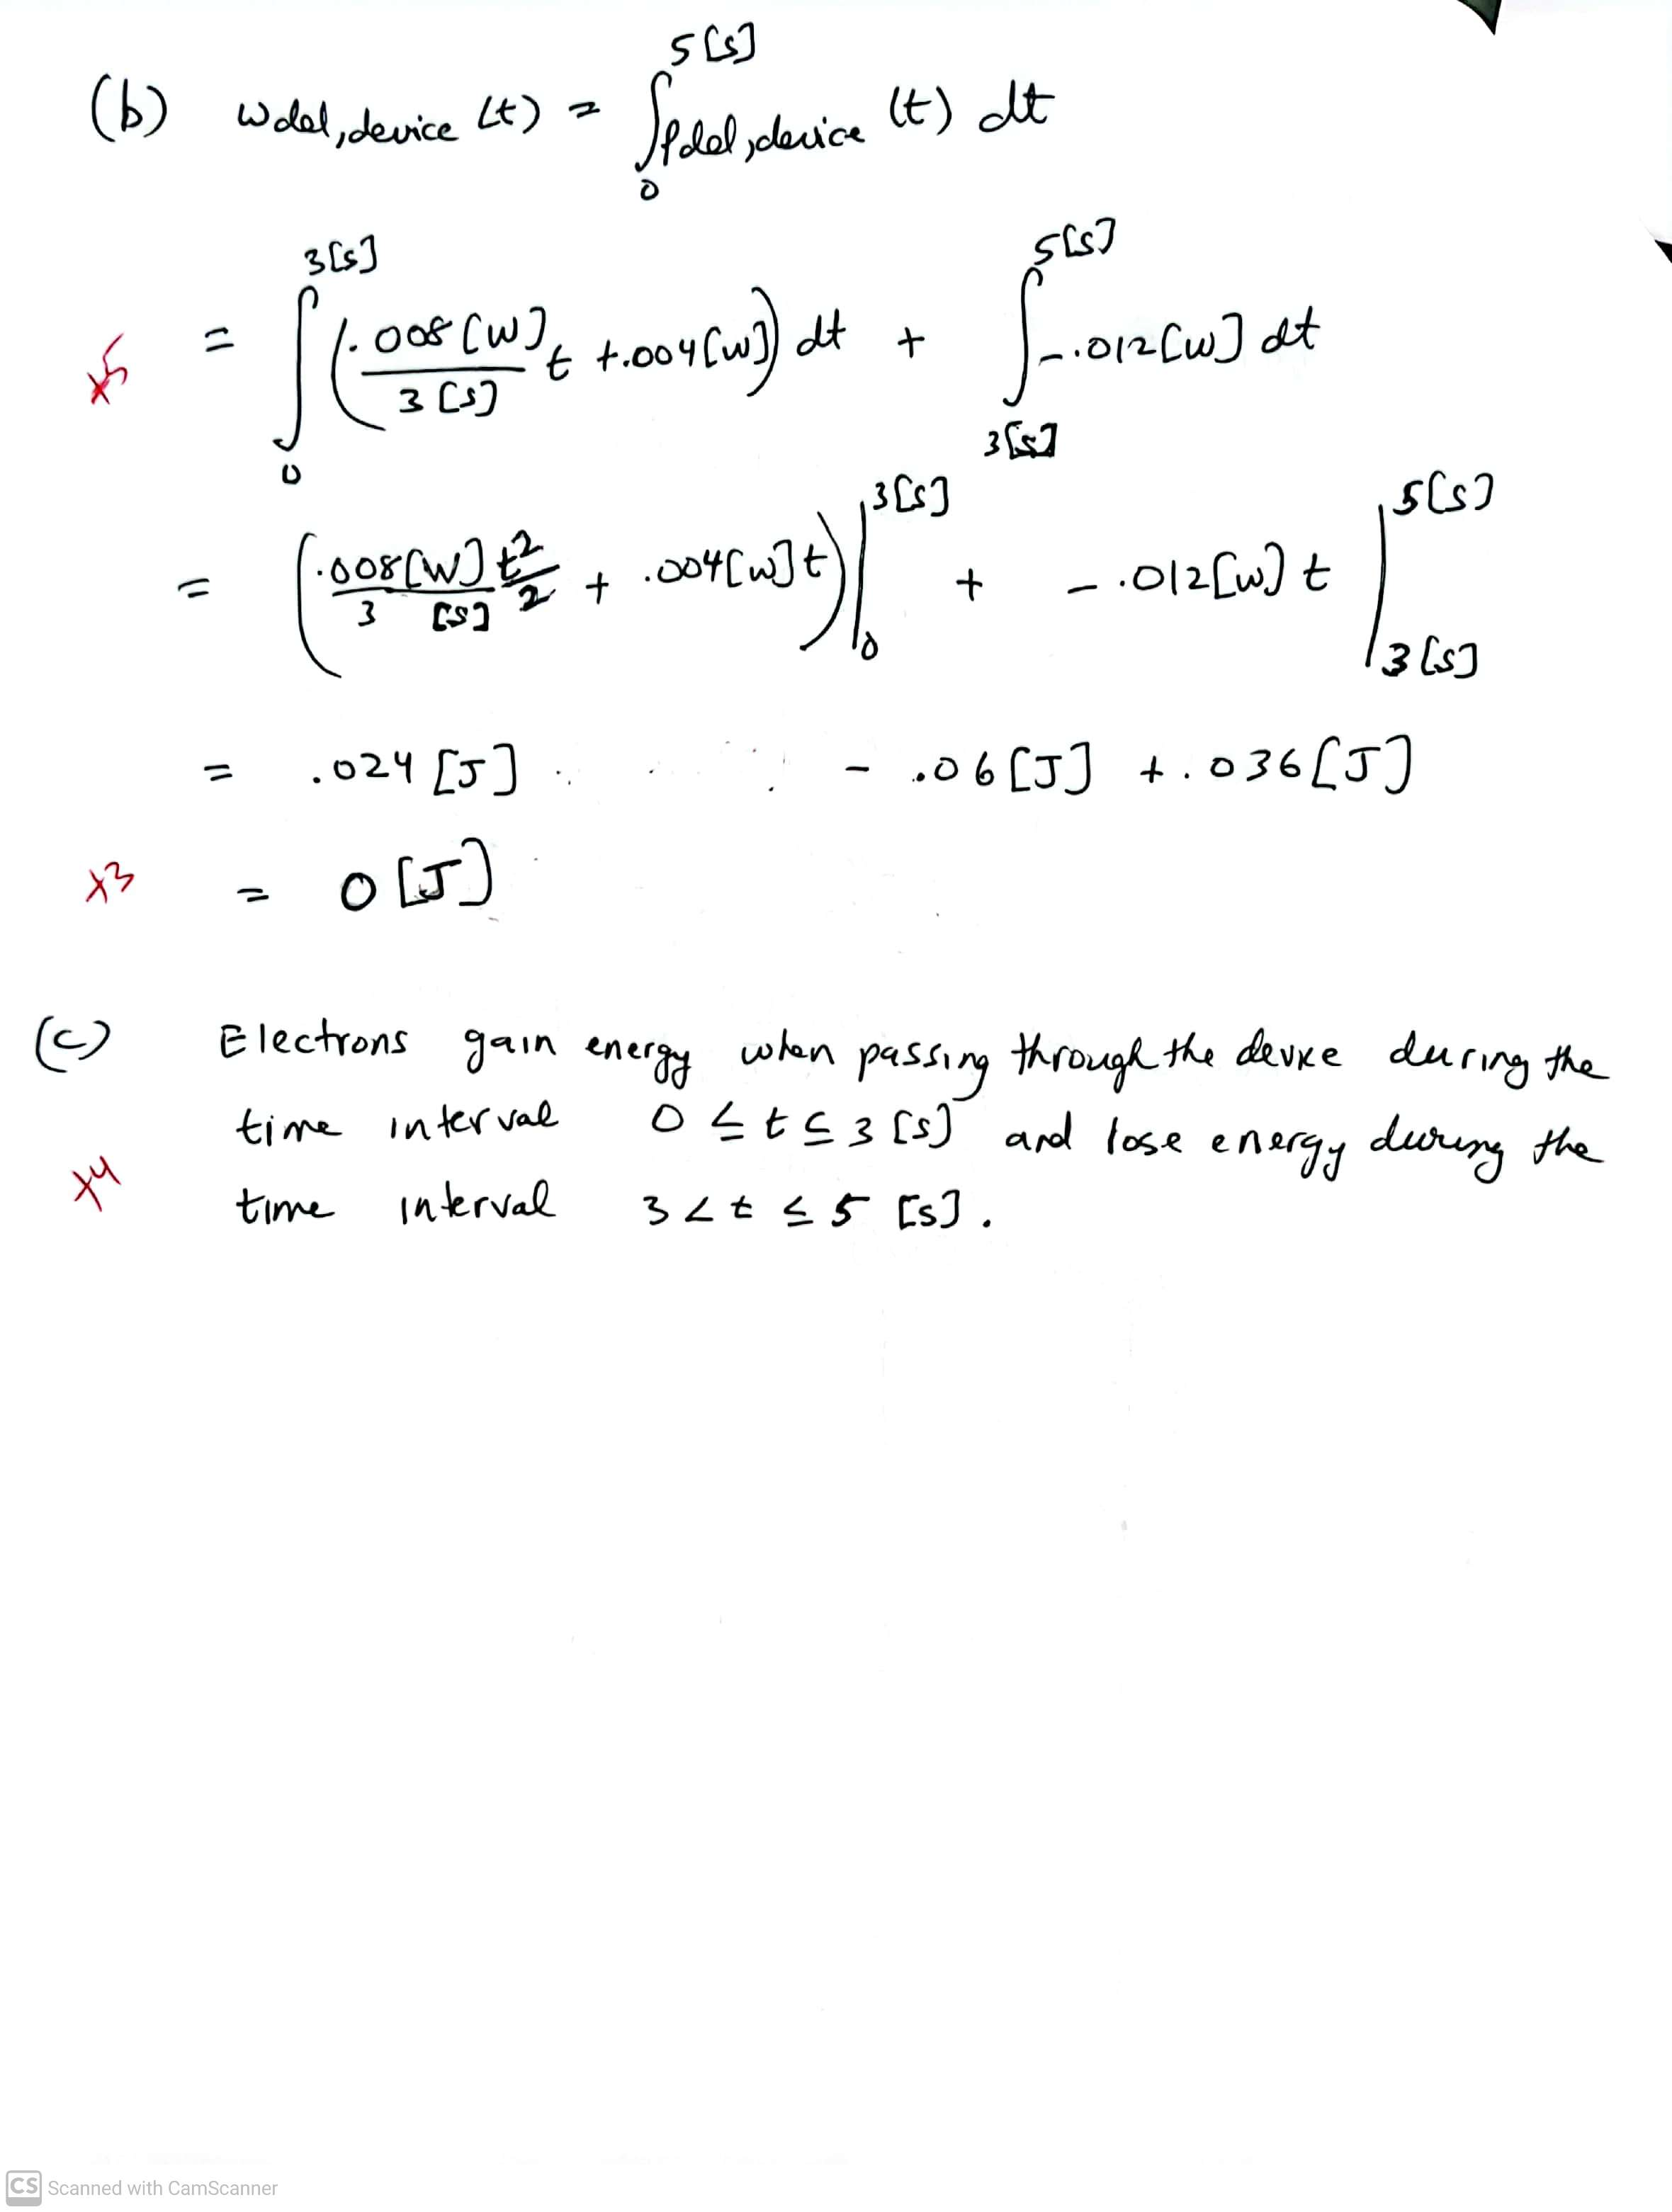 (b) wdel,device (t) = ∫₀^{5[s]} pdel,device (t) dt
x5 = ∫₀^{3[s]} (.008[W]/3[s] t + .004[W]) dt + ∫_{3[s]}^{5[s]} -.012[W] dt
= (.008[W]/3[s] t²/2 + .004[W]t)|₀^{3[s]} + -.012[W] t|_{3[s]}^{5[s]}
= .024 [J] - .06[J] +.036[J]
x3 = 0 [J]
(c) Electrons gain energy when passing through the device during the
time interval 0 ≤ t ≤ 3 [s] and lose energy during the
x4 time interval 3 < t ≤ 5 [s].
CS Scanned with CamScanner